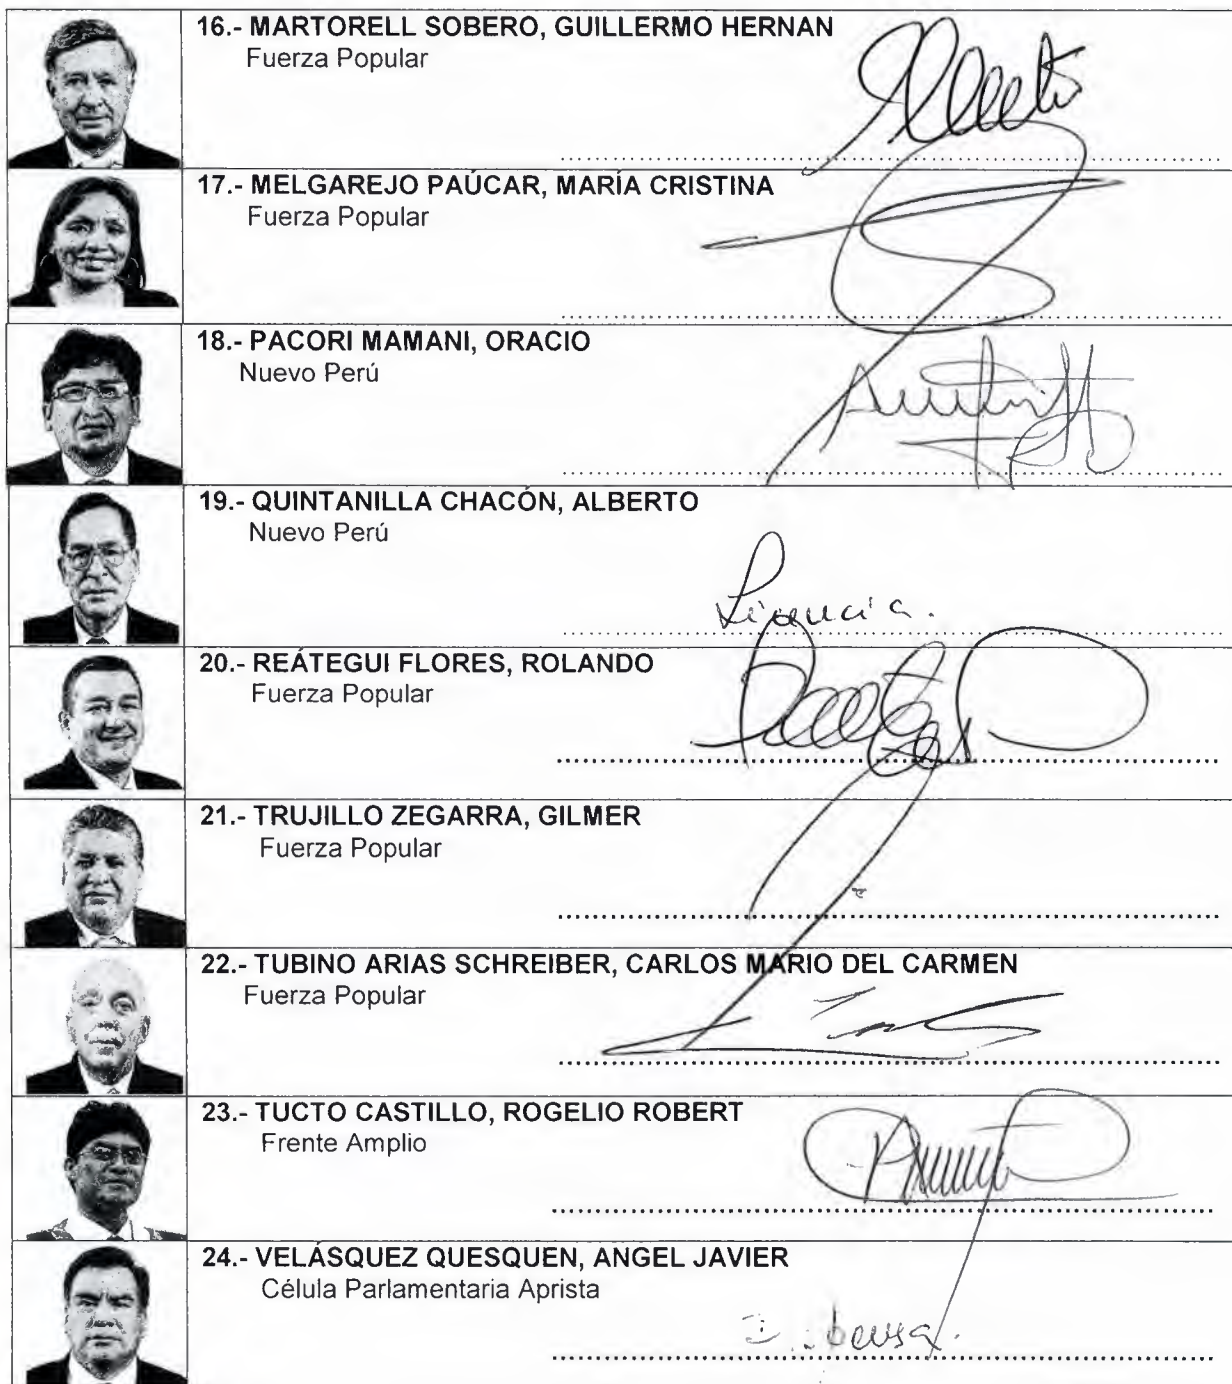 16.- MARTORELL SOBERO, GUILLERMO HERNAN
Fuerza Popular
17.- MELGAREJO PAÚCAR, MARÍA CRISTINA
Fuerza Popular
18.- PACORI MAMANI, ORACIO
Nuevo Perú
19.- QUINTANILLA CHACÓN, ALBERTO
Nuevo Perú
Licencia.
20.- REÁTEGUI FLORES, ROLANDO
Fuerza Popular
21.- TRUJILLO ZEGARRA, GILMER
Fuerza Popular
22.- TUBINO ARIAS SCHREIBER, CARLOS MARIO DEL CARMEN
Fuerza Popular
23.- TUCTO CASTILLO, ROGELIO ROBERT
Frente Amplio
24.- VELÁSQUEZ QUESQUEN, ANGEL JAVIER
Célula Parlamentaria Aprista